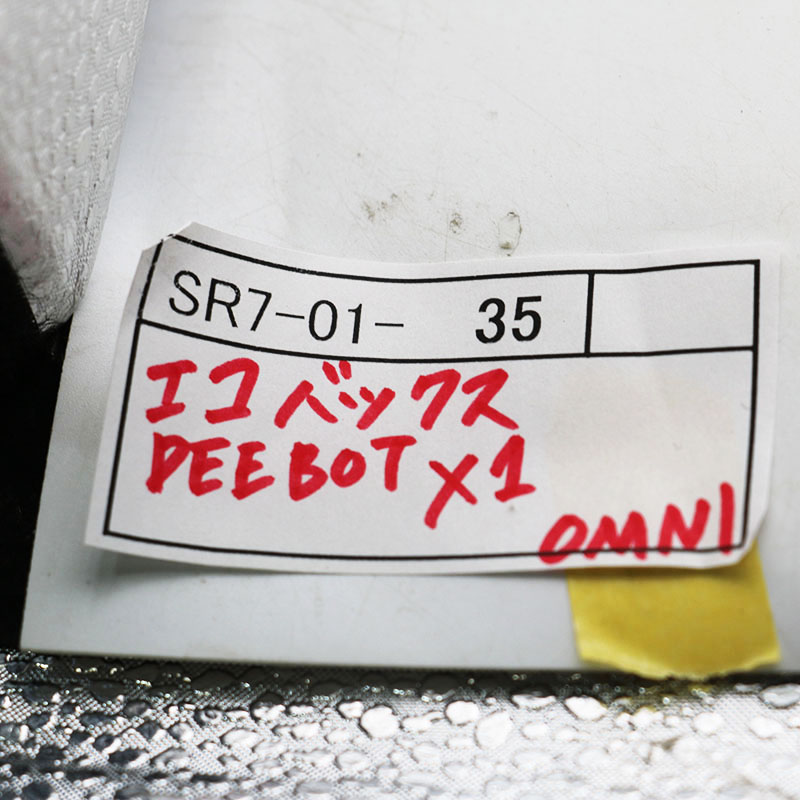 SR7-01- 35
エコバックス
DEEBOT X1
OMNI